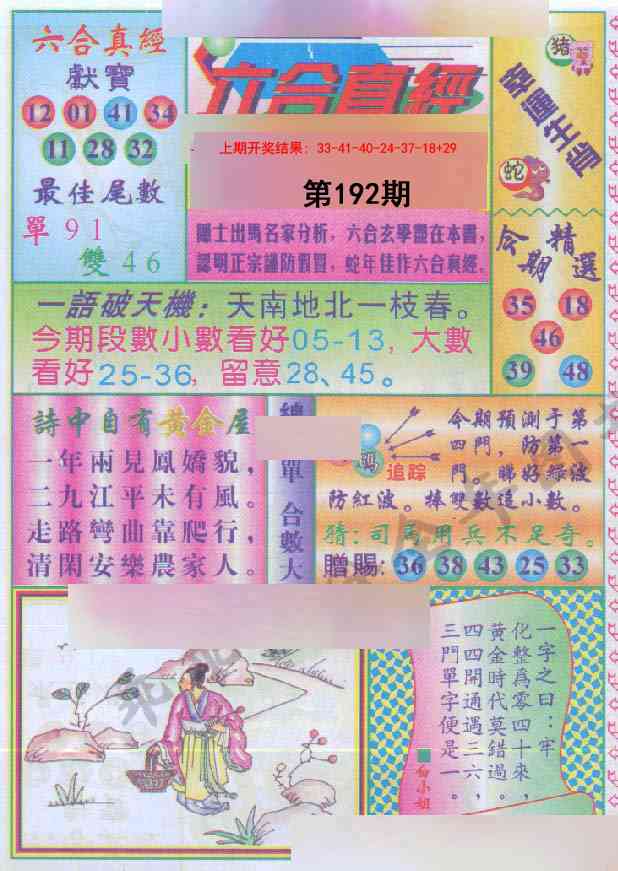 六合真經
獻寶
12 01 41 34
11 28 32
最佳尾數
單91
雙46
六合真經
上期开奖结果: 33-41-40-24-37-18+29
第192期
隱士出馬名家分析，六合玄學盡在本書，
認明正宗謹防假冒，蛇年佳作六合真經。
豬
蛇
今期精選
35 18
46
39 48
一語破天機：天南地北一枝春。
今期段數小數看好05-13，大數
看好25-36，留意28、45。
詩中自有黃金屋
一年兩見鳳嬌貌，
二九江平未有風。
走路彎曲靠爬行，
清閑安樂農家人。
總單 合數大
追踪
今期預測于第
四門，防第一
門。睇好綠波
防紅波。捧雙數追小數。
猜：司馬用兵不足奇。
贈賜: 36 38 43 25 33
一字之曰：牢
化整爲零四十來，
黃金時代莫錯過。
四四開通遇三六，
三門單字便是一。
白小姐